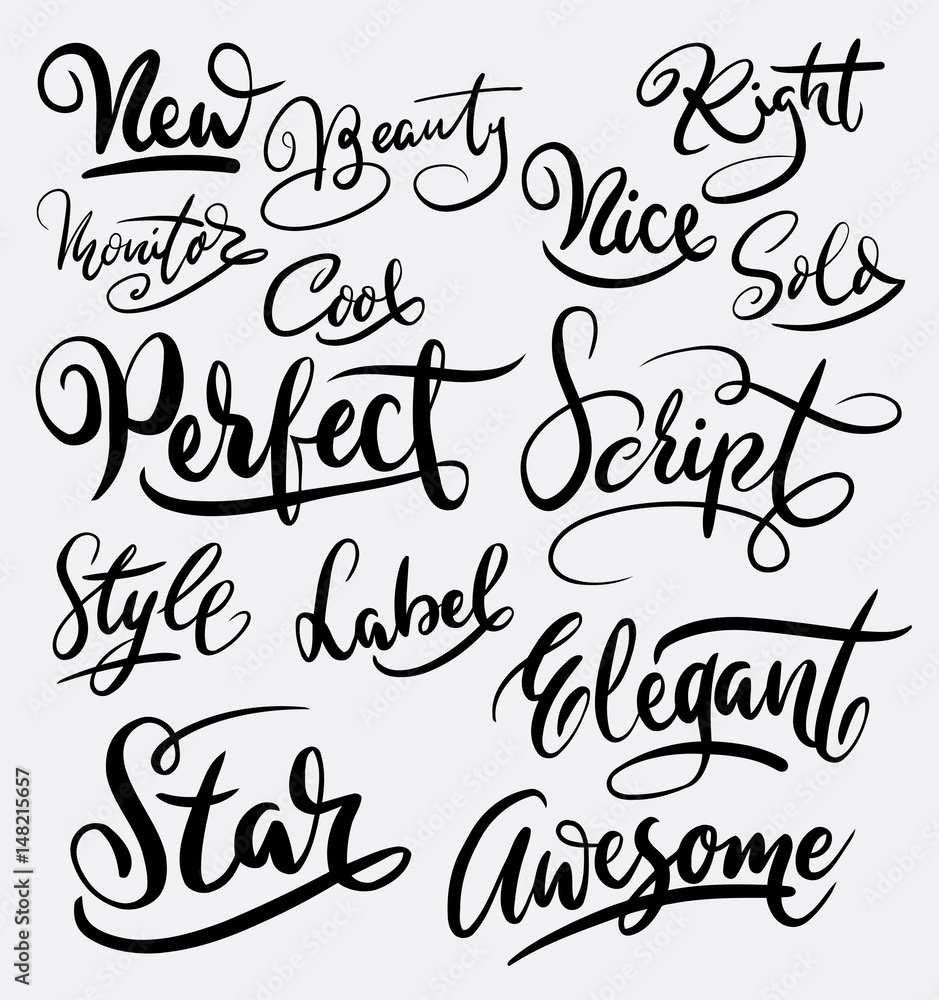 New
Beauty
Right
Nice
Monitor
Cool
Sold
Perfect
Script
Style
Label
Elegant
Star
Awesome
Adobe Stock | #148215657